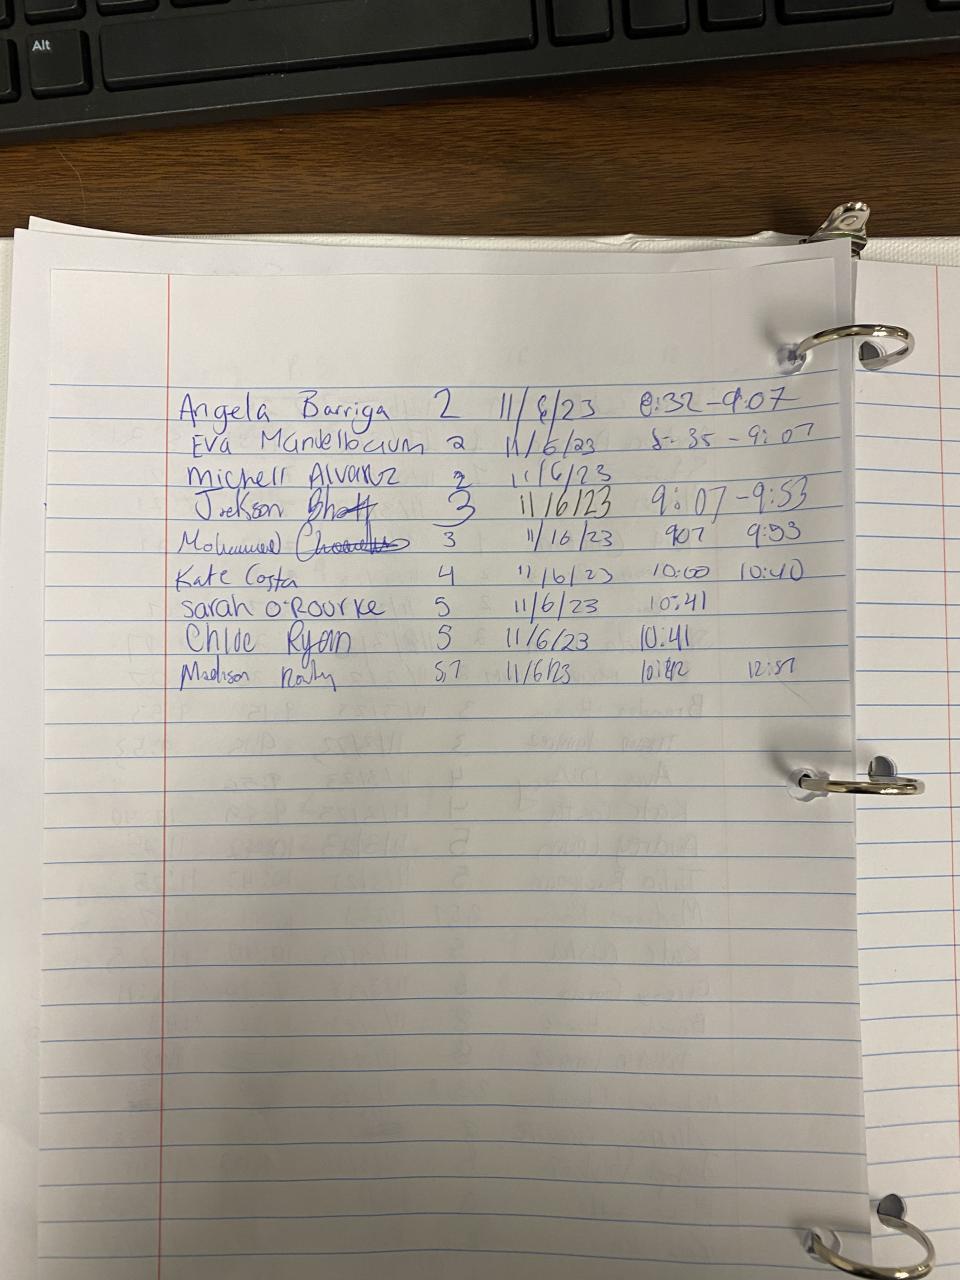 Alt
Angela Barriga 2 11/6/23 8:32-9:07
Eva Mandelbaum 2 11/6/23 8:35-9:07
Michell Alvarez 2 11/6/23
Jackson 3 11/6/23 9:07-9:53
Mohammed 3 11/16/23 907 9:53
Kate Costa 4 11/6/23 10:00 10:40
Sarah O'Rourke 5 11/6/23 10:41
Chloe Ryan 5 11/6/23 10:41
Madison 5,7 11/6/23 12:57